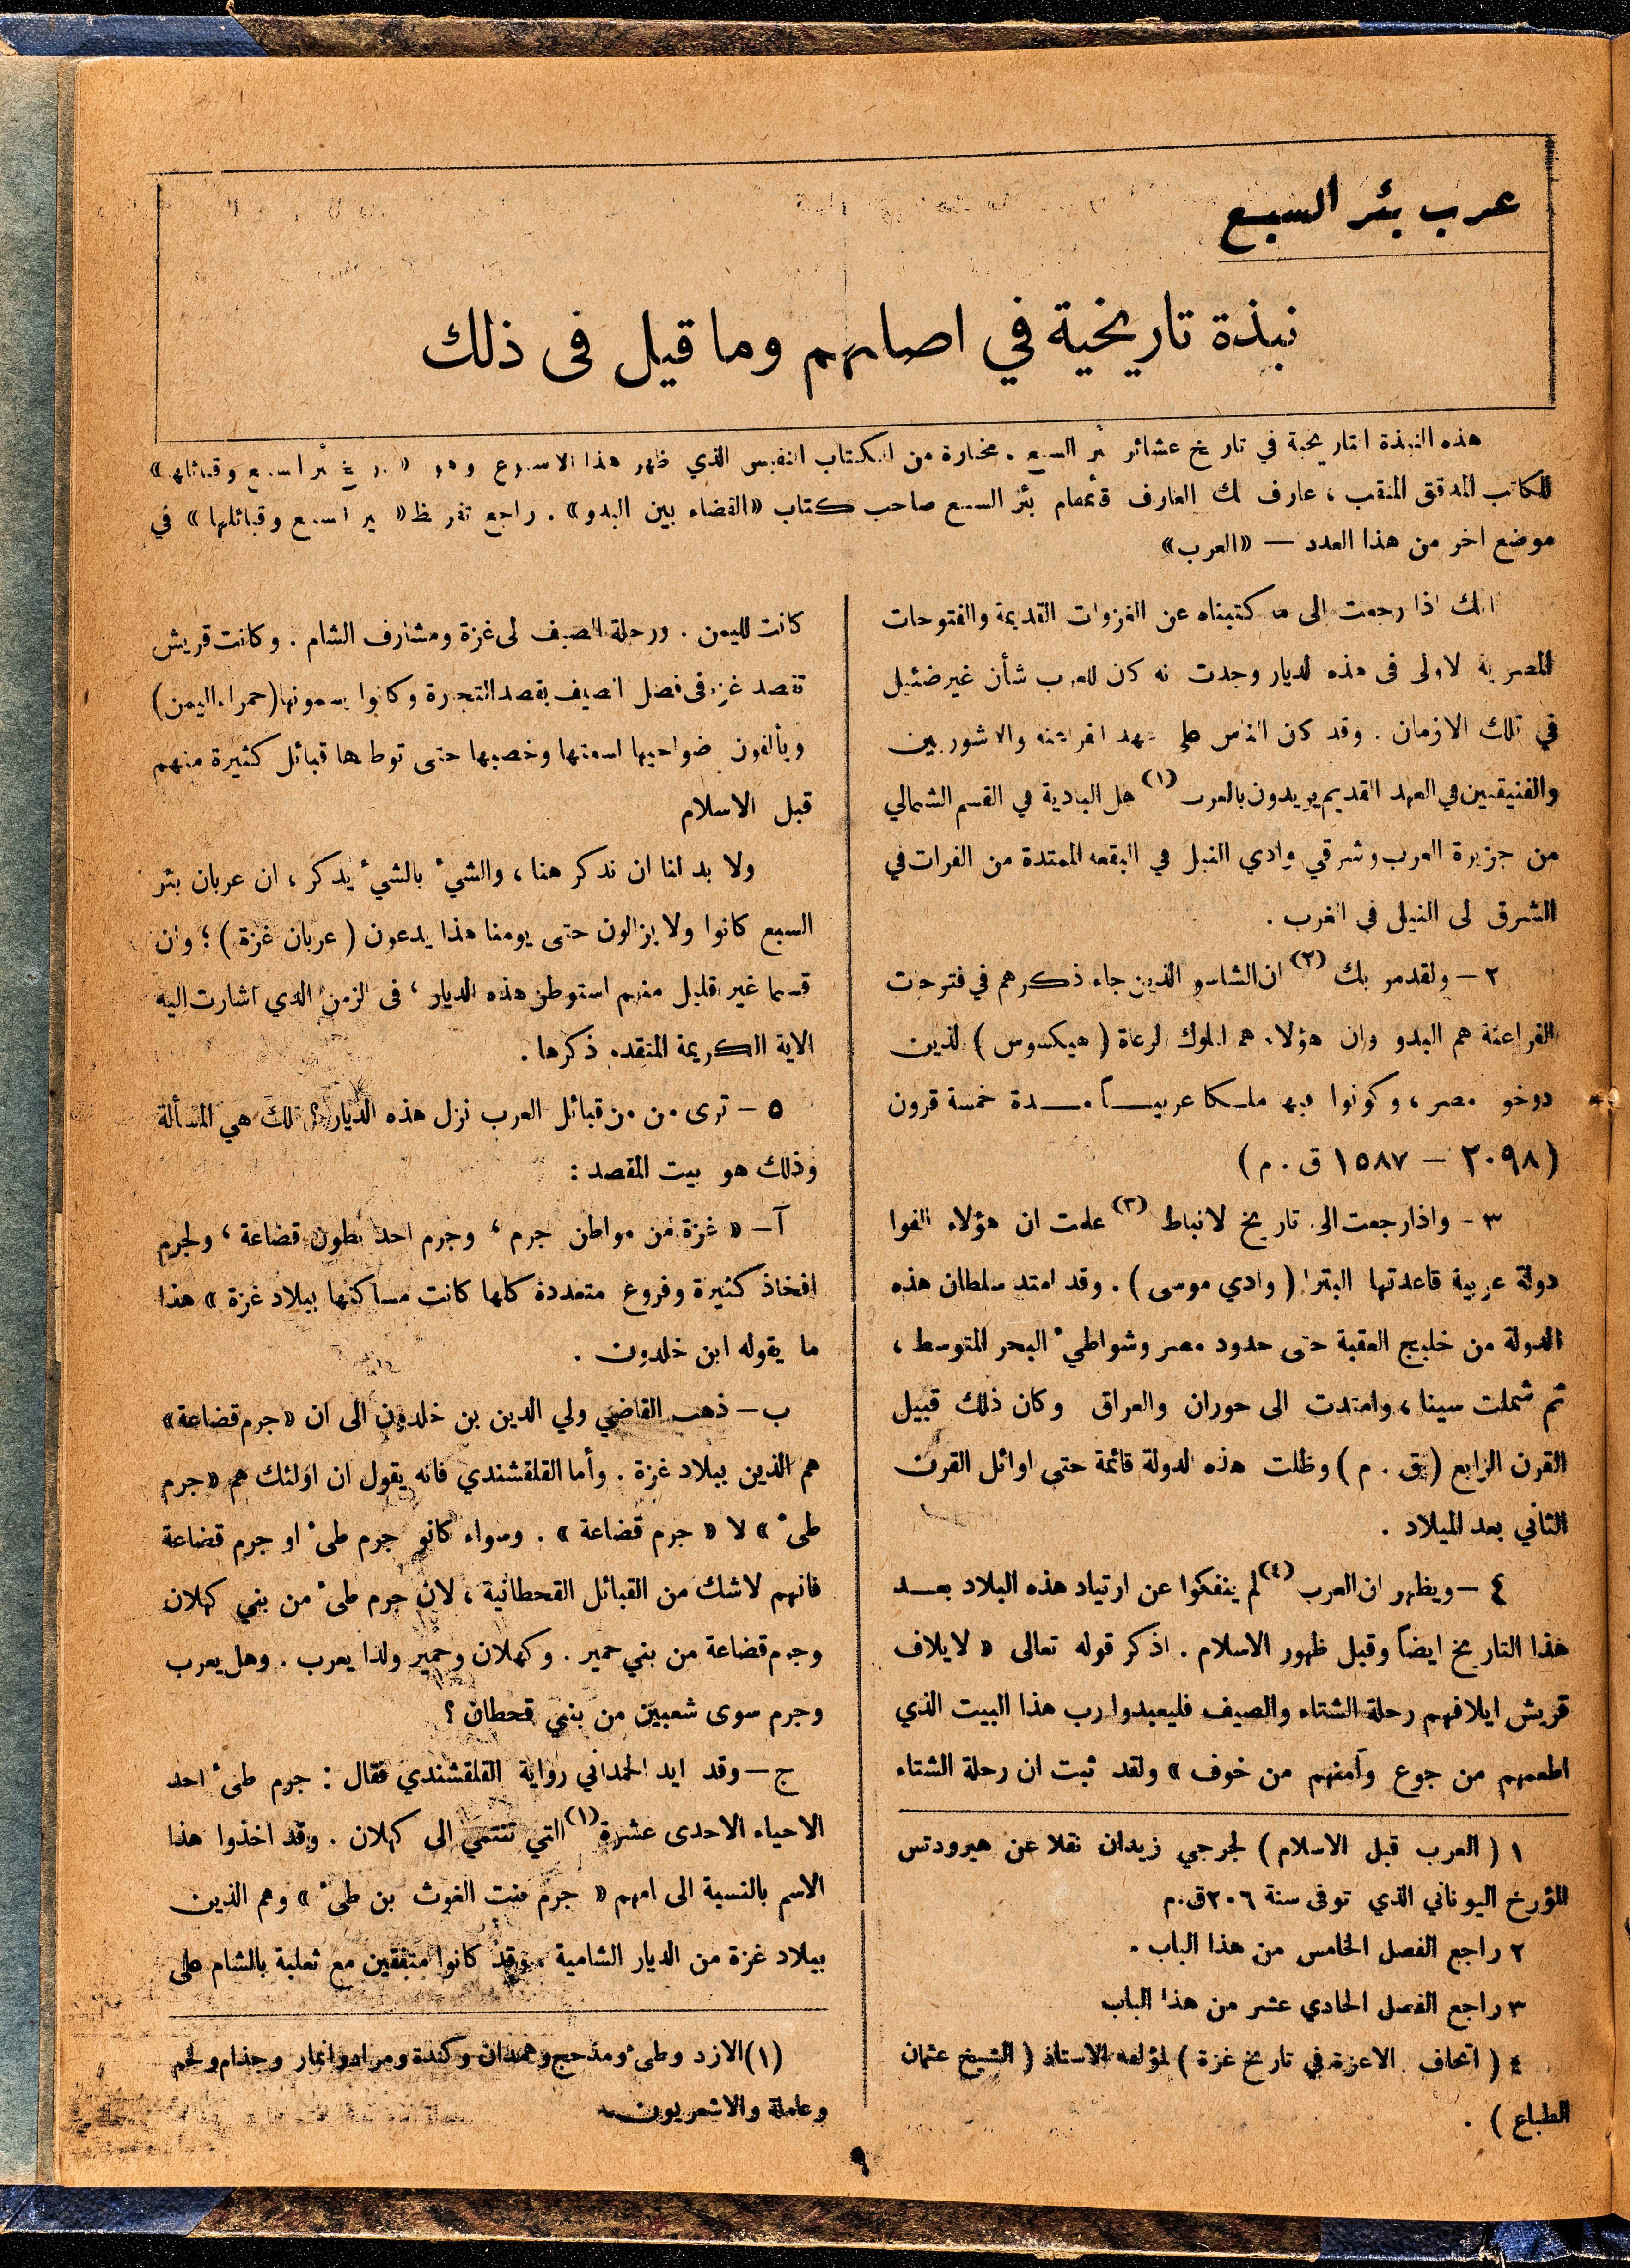 عرب بئر السبع
نبذة تاريخية في اصلهم وما قيل فى ذلك
هذه النبذة التاريخية في تاريخ عشائر بئر السبع . مختارة من الكتاب النفيس الذي ظهر هذا الاسبوع وهو « تاريخ بئر السبع وقبائلها »
للكاتب المدقق المنقب ، عارف بك العارف قائمقام بئر السبع صاحب كتاب «القضاء بين البدو» . راجع تقريظ « بير السبع وقبائلها » في
موضع اخر من هذا العدد — «العرب»
انك اذا رجعت الى ما كتبناه عن الغزوات القديمة والفتوحات
المصرية الاولى فى هذه الديار وجدت انه كان للعرب شأن غير ضئيل
في تلك الازمان . وقد كان الناس على عهد الفراعنه والاشوريين
والفنيقيين في العهد القديم يريدون بالعرب (١) اهل البادية في القسم الشمالي
من جزيرة العرب وشرقي وادي النيل في البقعه الممتدة من الفرات في
الشرق الى النيل في الغرب .
٢ – ولقد مر بك (٢) ان الشاسو الذين جاء ذكرهم في فتوحات
الفراعنة هم البدو وان هؤلاء هم الملوك الرعاة ( هيكسوس ) الذين
دوخو مصر ، وكونوا فيها ملكا عربيـاً مـدة خمسة قرون
( ٢٠٩٨ – ١٥٨٧ ق . م )
٣ - واذا رجعت الى تاريخ الانباط (٣) علمت ان هؤلاء الفوا
دولة عربية قاعدتها البترا ( وادي موسى ) . وقد امتد سلطان هذه
الدولة من خليج العقبة حتى حدود مصر وشواطيء البحر المتوسط ،
ثم شملت سينا ، وامتدت الى حوران والعراق وكان ذلك قبيل
القرن الرابع ( ق . م ) وظلت هذه الدولة قائمة حتى اوائل القرن
الثاني بعد الميلاد .
٤ – ويظهر ان العرب (٤) لم ينفكوا عن ارتياد هذه البلاد بعـد
هذا التاريخ ايضاً وقبل ظهور الاسلام . اذكر قوله تعالى « لايلاف
قريش ايلافهم رحلة الشتاء والصيف فليعبدوا رب هذا البيت الذي
اطعمهم من جوع وآمنهم من خوف » ولقد ثبت ان رحلة الشتاء
١ ( العرب قبل الاسلام ) لجرجي زيدان نقلا عن هيرودتس
المؤرخ اليوناني الذي توفى سنة ٢٠٦ ق.م
٢ راجع الفصل الخامس من هذا الباب .
٣ راجع الفصل الحادي عشر من هذا الباب
٤ ( اتحاف الاعزة في تاريخ غزة ) لمؤلفه الاستاذ ( الشيخ عثمان
الطباع ) .
كانت لليمن . ورحلة الصيف الى غزة ومشارف الشام . وكانت قريش
تقصد غزة فى فصل الصيف بقصد التجارة وكانوا يسمونها (حمراء اليمن)
ويألفون ضواحيها لسعتها وخصبها حتى توطنها قبائل كثيرة منهم
قبل الاسلام
ولا بد لنا ان نذكر هنا ، والشيء بالشيء يذكر ، ان عربان بئر
السبع كانوا ولا يزالون حتى يومنا هذا يدعون ( عربان غزة ) ؛ وان
قسما غير قليل منهم استوطن هذه الديار ، فى الزمن الذي اشارت اليه
الاية الكريمة المتقدم ذكرها .
٥ – ترى من من قبائل العرب نزل هذه الديار ؟ تلك هي المسألة
وذلك هو بيت المقصد :
آ – « غزة من مواطن جرم ، وجرم احد بطون قضاعة ، ولجرم
افخاذ كثيرة وفروع متعددة كلها كانت مساكنها ببلاد غزة » هذا
ما يقوله ابن خلدون .
ب – ذهب القاضي ولي الدين بن خلدون الى ان «جرم قضاعة»
هم الذين ببلاد غزة . وأما القلقشندي فانه يقول ان اولئك هم «جرم
طيء » لا « جرم قضاعة » . وسواء كانو جرم طيء او جرم قضاعة
فانهم لاشك من القبائل القحطانية ، لان جرم طيء من بني كهلان
وجرم قضاعة من بني حمير . وكهلان وحمير ولدا يعرب . وهل يعرب
وجرم سوى شعبين من بني قحطان ؟
ج – وقد ايد الحمداني رواية القلقشندي فقال : جرم طيء احد
الاحياء الاحدى عشرة (١) التي تنتمي الى كهلان . وقد اخذوا هذا
الاسم بالنسبة الى امهم « جرم بنت الغوث بن طيء » وهم الذين
ببلاد غزة من الديار الشامية . وقد كانوا متفقين مع ثعلبة بالشام على
(١) الازد وطيء ومذحج وهمدان وكندة ومراد وانمار وجذام ولخم
وعاملة والاشعريون
٩